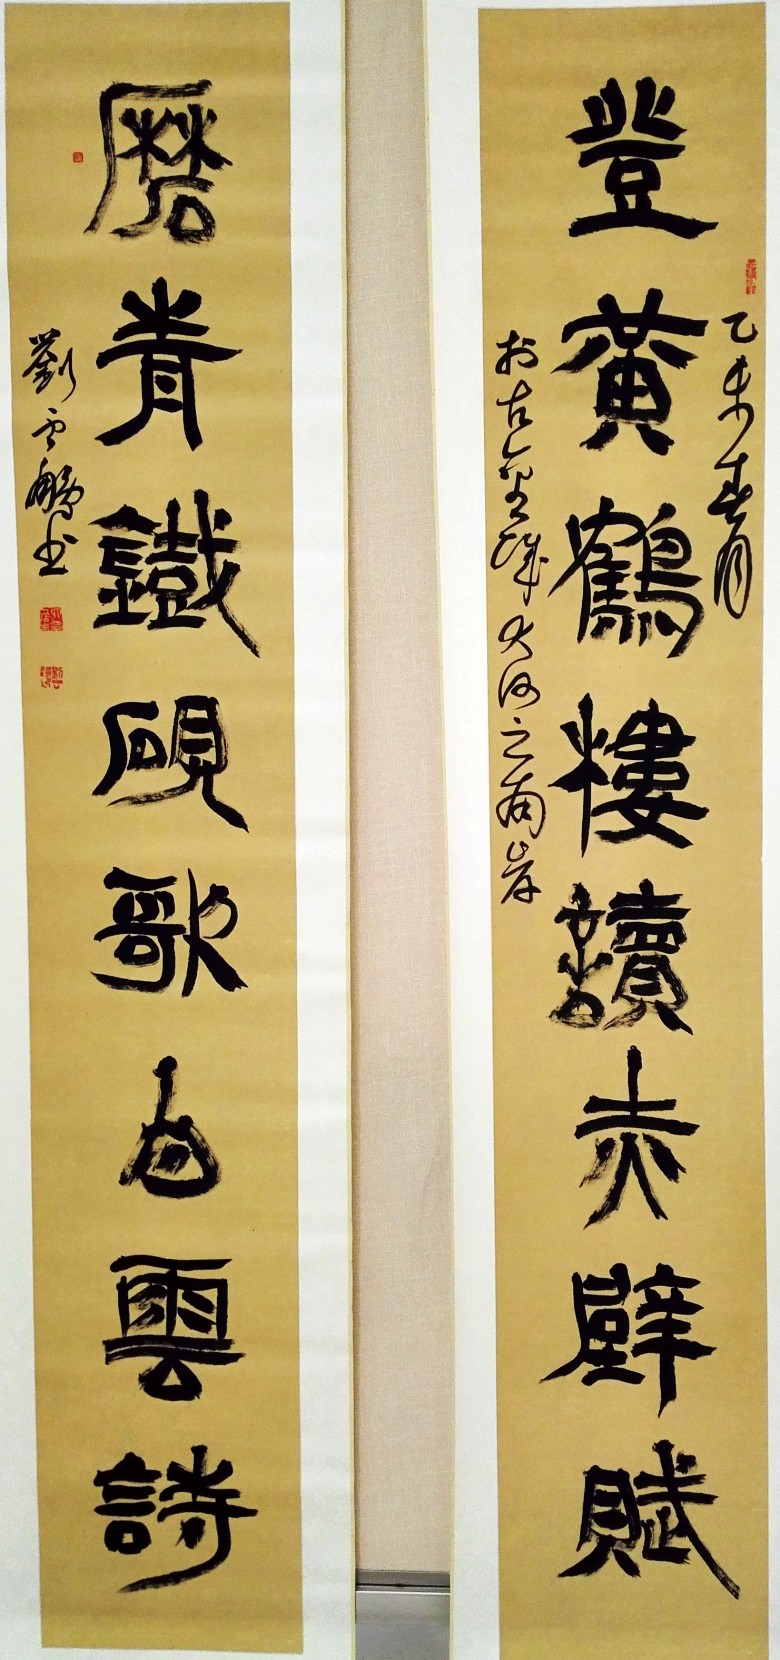 乙未春月
登黃鶴樓讀赤壁賦
於古金城大河之南岸
磨青鐵硯歌白雲詩
劉雲鵬书